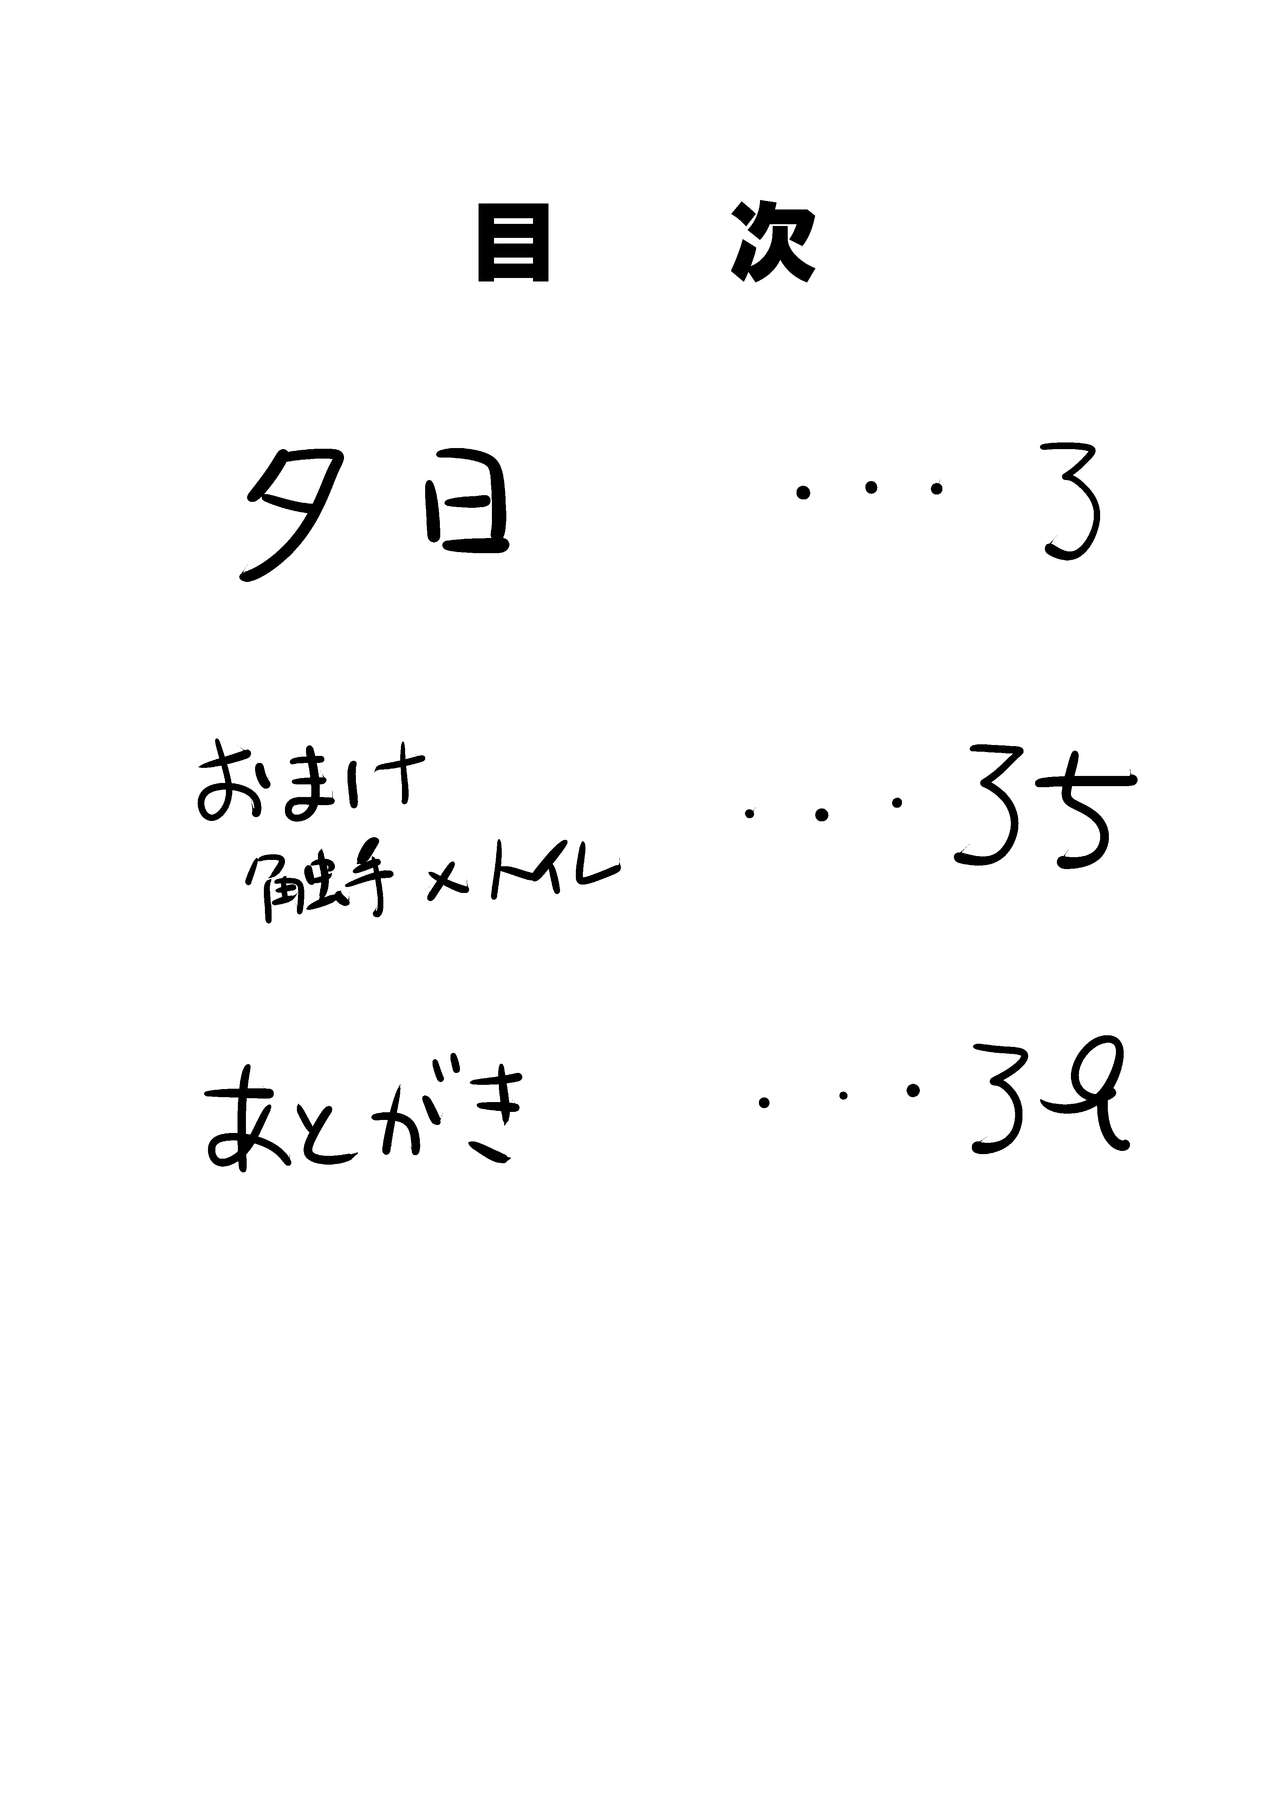 目 次
夕日 ・・・ 3
おまけ
触手×トイレ ・・・ 35
あとがき ・・・ 39